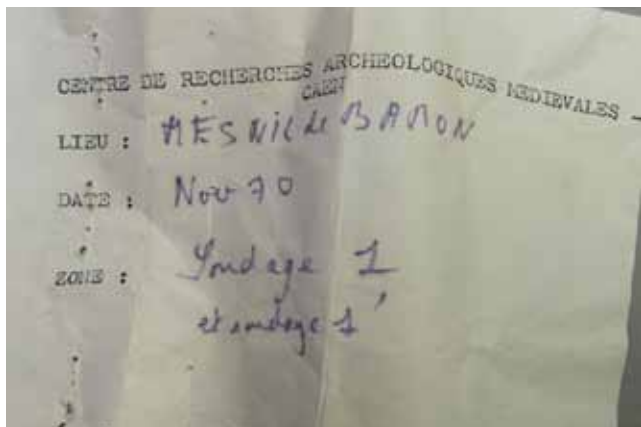 CENTRE DE RECHERCHES ARCHEOLOGIQUES MEDIEVALES -
CAEN
LIEU : MESNIL de BARON
DATE : Nov 70
ZONE : Sondage 1
et sondage 1'